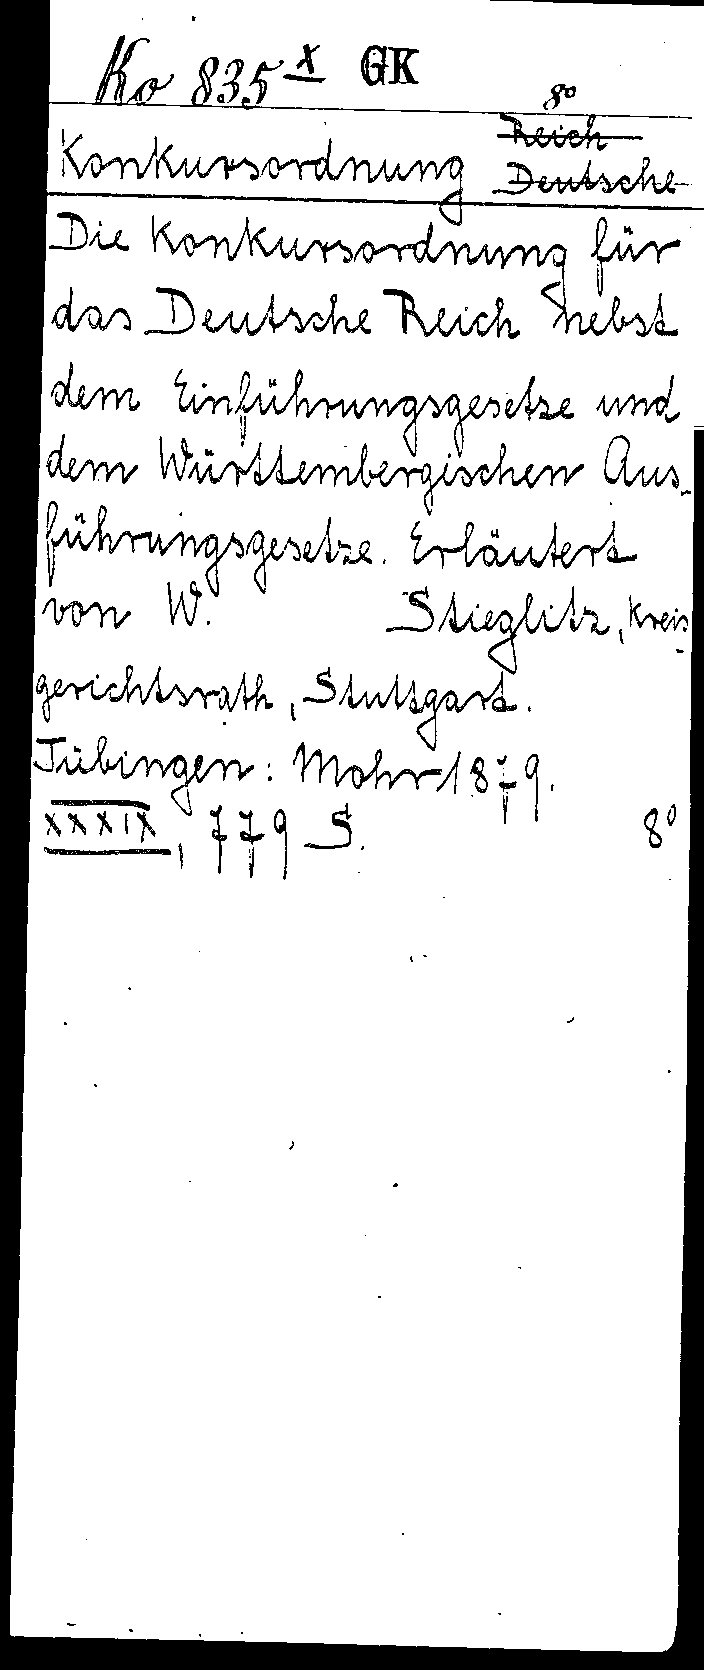 Ko 835 x GK
8°
Reich
Konkursordnung Deutsche
Die Konkursordnung für
das Deutsche Reich nebst
dem Einführungsgesetze und
dem Württembergischen Aus-
führungsgesetze. Erläutert
von W. Stieglitz, Kreis-
gerichtsrath, Stuttgart.
Tübingen: Mohr 1879.
XXXIX, 779 S. 8°